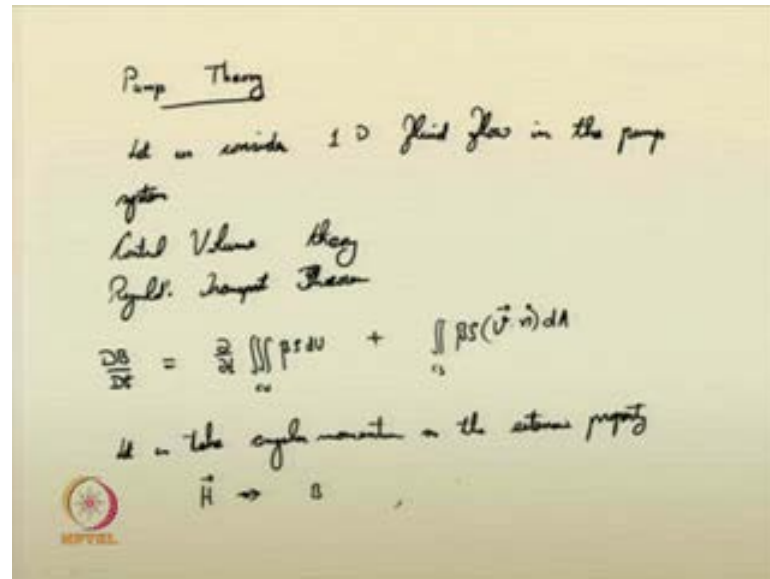 Pump Theory
Let us consider 1 D fluid flow in the pump
system
Control Volume theory
Reynolds Transport Theorem
DB/Dt = ∂/∂t ∭ βρdV + ∬ βρ(v⃗·n̂)dA
cv cs
Let us take angular momentum as the extensive property
H⃗ → B
NPTEL